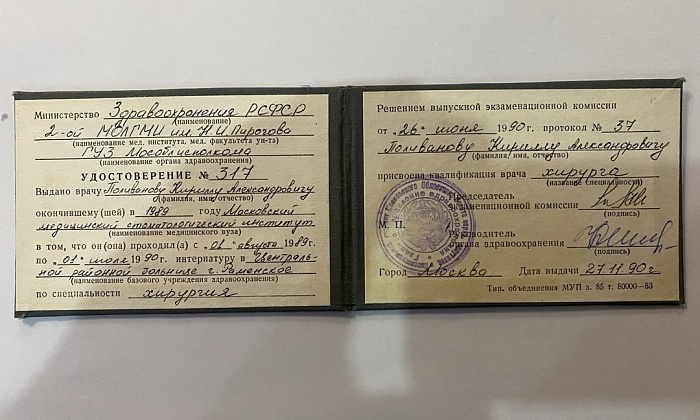 Министерство Здравоохранения РСФСР
(наименование)
2-ой МОЛГМИ им. Н.И.Пирогова
(наименование мед. института, мед. факультета ун-та)
ГУЗ Мособлисполкома
(наименование органа здравоохранения)
УДОСТОВЕРЕНИЕ № 317
Выдано врачу Поливанову Кириллу Александровичу
(фамилия, имя, отчество)
окончившему (шей) в 1989 году Московский
медицинский стоматологический институт
(наименование медицинского вуза)
в том, что он(она) проходил(а) с „01" августа 1989г.
по „01" июля 1990г. интернатуру в Централь-
ной районной больнице г. Раменское
(наименование базового учреждения здравоохранения)
по специальности хирургия
Решением выпускной экзаменационной комиссии
от „26" июня 1990г. протокол № 37
Поливанову Кириллу Александровичу
(фамилия, имя, отчество)
присвоена квалификация врача хирурга
(название специальности)
Председатель
экзаменационной комиссии
(подпись)
М. П.
Руководитель
органа здравоохранения
(подпись)
Город Москва Дата выдачи 27.11.90г
Тип. объединения МУП з. 85 т. 80000—83